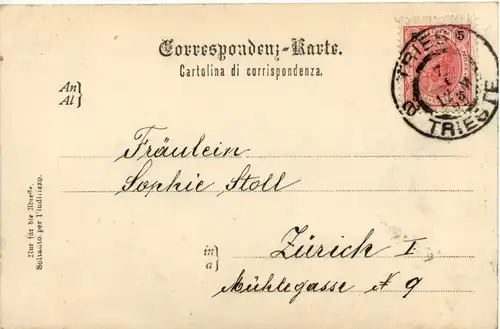 Correspondenz-Karte.
Cartolina di corrispondenza.
TRIEST 5
TRIESTE
An
Al
Fräulein
Sophie Stoll
in
a
Zürich I
Mühlegasse N 9
Nur für die Adresse.
Soltanto per l'indirizzo.